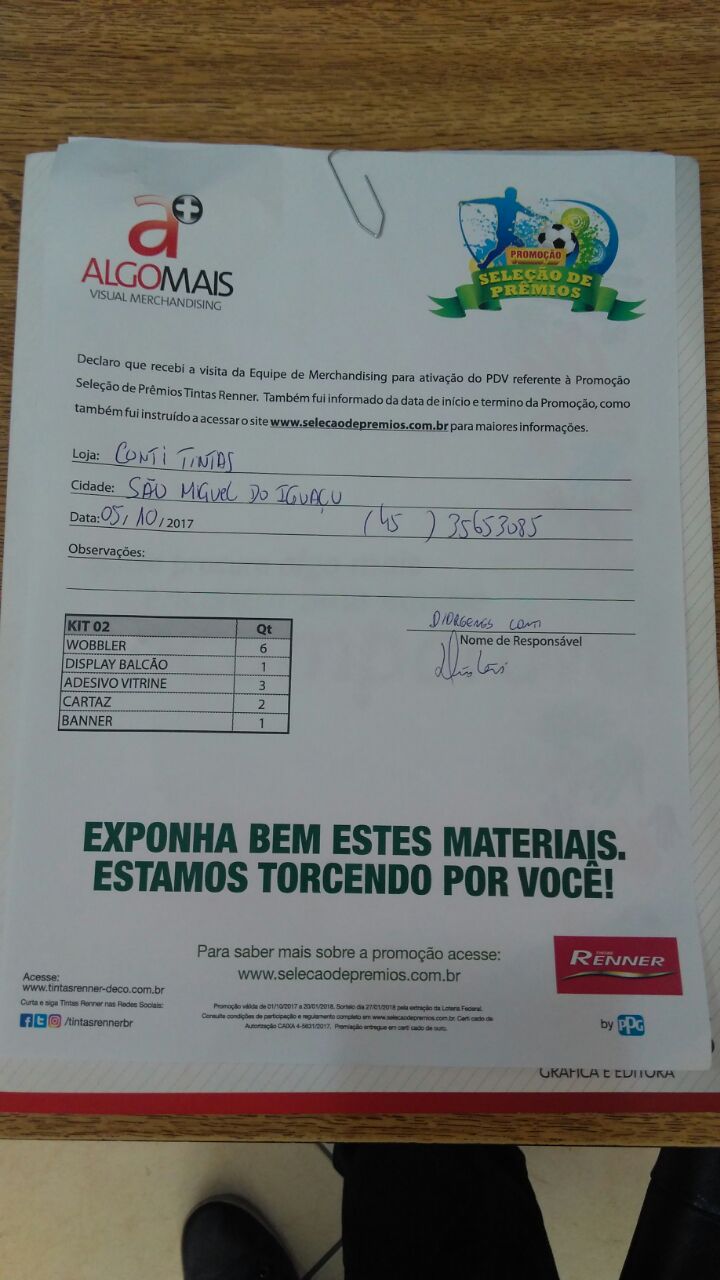 a+
ALGOMAIS
VISUAL MERCHANDISING
PROMOÇÃO
SELEÇÃO DE
PRÊMIOS
Declaro que recebi a visita da Equipe de Merchandising para ativação do PDV referente à Promoção
Seleção de Prêmios Tintas Renner. Também fui informado da data de início e termino da Promoção, como
também fui instruído a acessar o site www.selecaodepremios.com.br para maiores informações.
Loja: CONTI TINTAS
Cidade: SÃO MIGUEL DO IGUAÇU
Data: 05/10/2017 (45) 35653085
Observações:
KIT 02 Qt
WOBBLER 6
DISPLAY BALCÃO 1
ADESIVO VITRINE 3
CARTAZ 2
BANNER 1
DIORGENES CONTI
Nome de Responsável
EXPONHA BEM ESTES MATERIAIS.
ESTAMOS TORCENDO POR VOCÊ!
Para saber mais sobre a promoção acesse:
www.selecaodepremios.com.br
Acesse:
www.tintasrenner-deco.com.br
Curta e siga Tintas Renner nas Redes Sociais:
/tintasrennerbr
Promoção válida de 01/10/2017 a 20/01/2018. Sorteio dia 27/01/2018 pela extração da Loteria Federal.
Consulte condições de participação e regulamento completo em www.selecaodepremios.com.br. Certificado de
Autorização CAIXA 4-5631/2017. Premiação entregue em certificado de ouro.
TINTAS
RENNER
by PPG
GRÁFICA E EDITORA